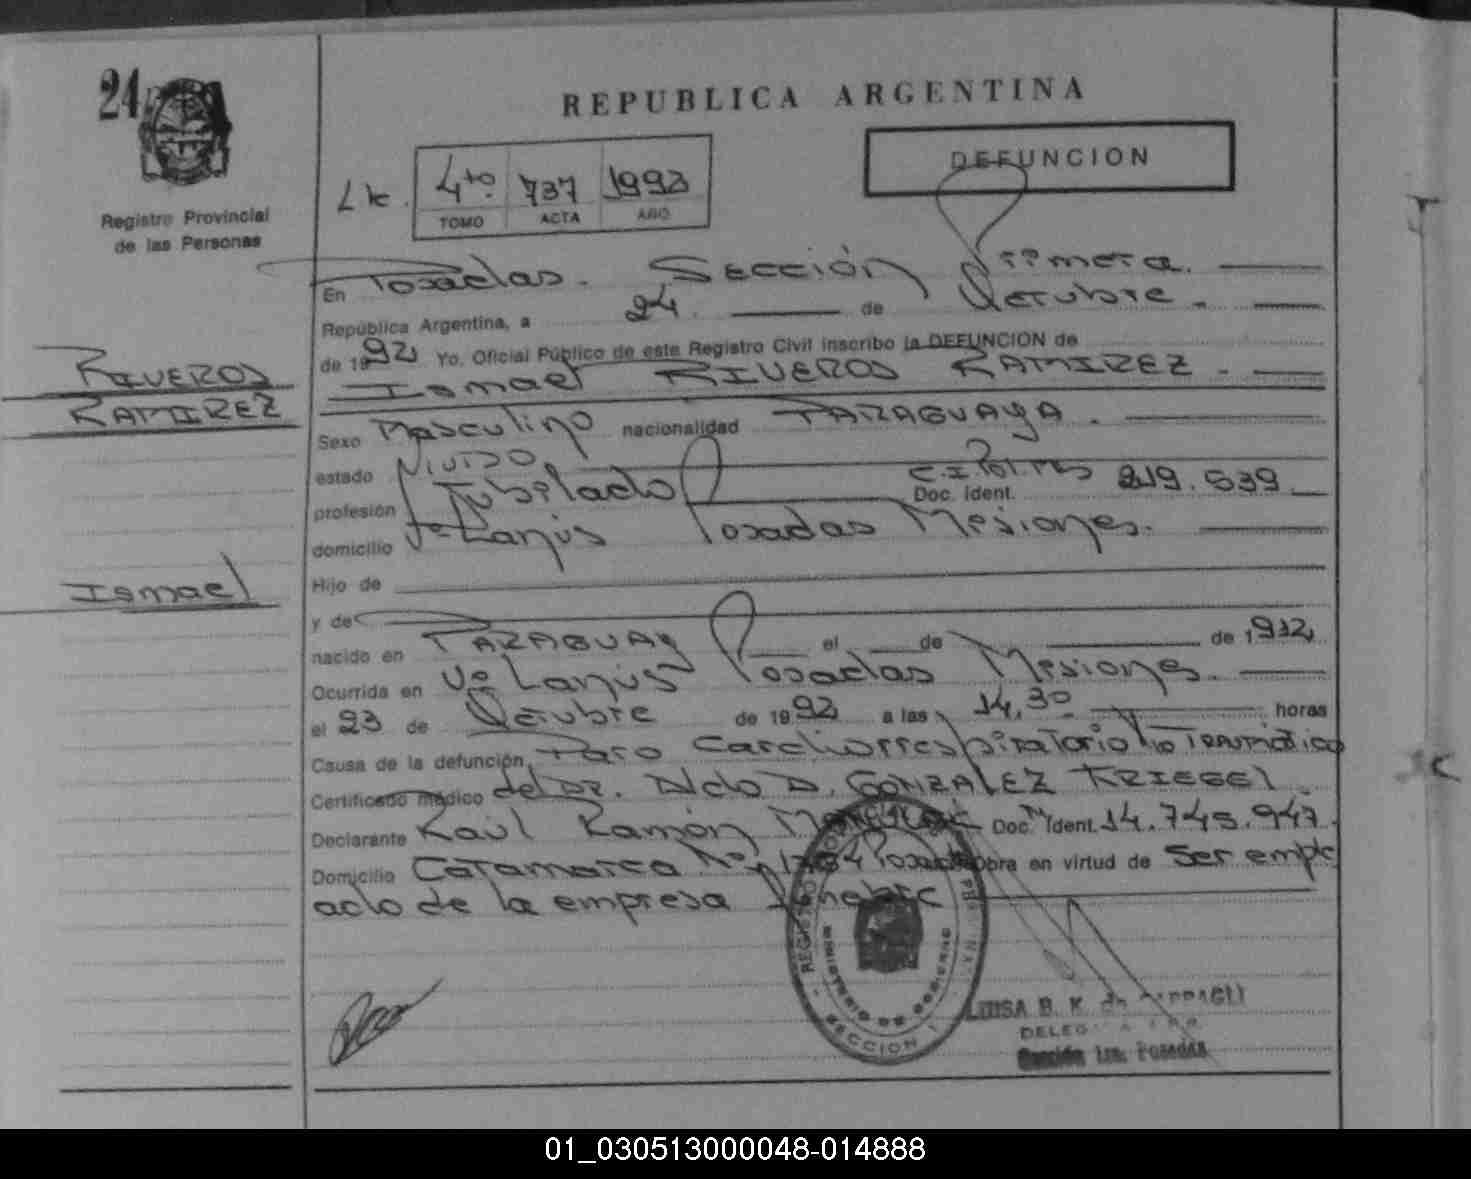 24
REPUBLICA ARGENTINA
DEFUNCION
4to. 737 1992
TOMO ACTA AÑO
Registro Provincial
de las Personas
En Posadas. Sección Primera.
República Argentina, a 24 de Octubre.
de 1992 Yo, Oficial Público de este Registro Civil inscribo la DEFUNCION de
Ismael RIVEROS RAMIREZ.
RIVEROS
RAMIREZ
Ismael
Sexo Masculino nacionalidad PARAGUAYA.
estado Viudo
profesión Jubilado C.I. Pol. Mes Doc. Ident. 219.539
domicilio Vª Lanús Posadas Misiones.
Hijo de
y de
nacido en PARAGUAY el de de 1912
Ocurrida en Vª Lanús Posadas Misiones.
el 23 de Octubre de 1992 a las 14,30 horas
Causa de la defunción Paro Cardiorrespiratorio no Traumático
Certificado médico del Dr. Aldo D. GONZALEZ KRIEGEL.
Declarante Raúl Ramón Doc. Ident. 14.745.947.
Domicilio Catamarca Nº Posadas Obra en virtud de ser emple
ado de la empresa
MINISTERIO DE GOBIERNO
SECCION 1
LUISA B. K. de
Sección 1ra. Posadas
01_030513000048-014888